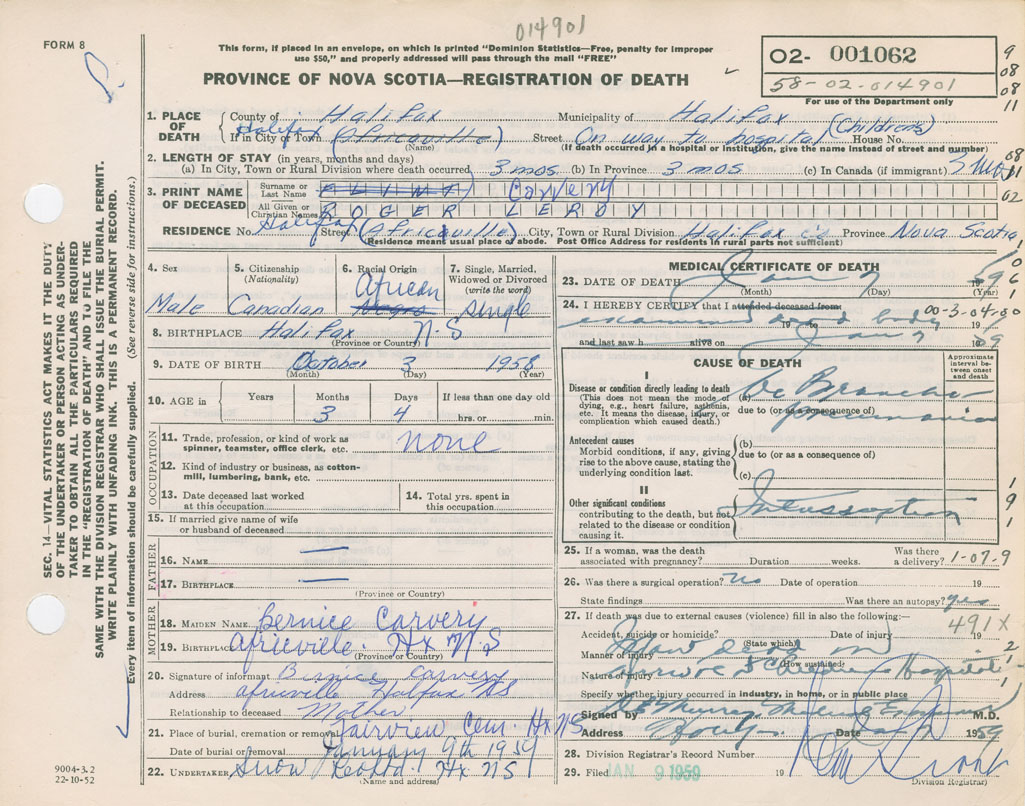 014901
FORM 8
This form, if placed in an envelope, on which is printed "Dominion Statistics—Free, penalty for improper
use $50," and properly addressed will pass through the mail "FREE"
PROVINCE OF NOVA SCOTIA—REGISTRATION OF DEATH
O2- 001062
58-02-014901
For use of the Department only
9
08
08
11
1. PLACE OF DEATH
County of Halifax Municipality of Halifax
If in City or Town Halifax (Africaville) Street On way to hospital (Childrens) House No.
(Name) (If death occurred in a hospital or institution, give the name instead of street and number)
2. LENGTH OF STAY (in years, months and days)
(a) In City, Town or Rural Division where death occurred 3 mos. (b) In Province 3 mos. (c) In Canada (if immigrant) 3 Mos
08
11
02
3. PRINT NAME OF DECEASED
Surname or Last Name Carvery
All Given or Christian Names ROGER LEROY
RESIDENCE No. Halifax Street (Africaville) City, Town or Rural Division Halifax Province Nova Scotia
(Residence means usual place of abode. Post Office Address for residents in rural parts not sufficient)
4. Sex
Male
5. Citizenship
(Nationality)
Canadian
6. Racial Origin
African
Negro
7. Single, Married,
Widowed or Divorced
(write the word)
single
8. BIRTHPLACE Halifax N-S
(Province or Country)
9. DATE OF BIRTH October 3 1958
(Month) (Day) (Year)
10. AGE in
Years Months Days If less than one day old
3 4 hrs. or min.
OCCUPATION
11. Trade, profession, or kind of work as
spinner, teamster, office clerk, etc. none
12. Kind of industry or business, as cotton-
mill, lumbering, bank, etc.
13. Date deceased last worked
at this occupation
14. Total yrs. spent in
this occupation
15. If married give name of wife
or husband of deceased
FATHER
16. NAME —
17. BIRTHPLACE —
(Province or Country)
MOTHER
18. MAIDEN NAME Bernice Carvery
19. BIRTHPLACE Africville Hx N S
(Province or Country)
20. Signature of informant Bernice Carvery
Address Africville Halifax NS
Relationship to deceased Mother
21. Place of burial, cremation or removal Fairview Cem. Hx NS
Date of burial or removal January 9th 1959
22. UNDERTAKER Snow Hx NS
(Name and address)
MEDICAL CERTIFICATE OF DEATH
23. DATE OF DEATH Jan 7 1959
(Month) (Day) (Year)
0
6
1
24. I HEREBY CERTIFY that I attended deceased from
00-3-04-00
examined dead body Jan 7
and last saw h alive on 19 59
CAUSE OF DEATH
Approximate
interval be-
tween onset
and death
I
Disease or condition directly leading to death
(This does not mean the mode of
dying, e.g., heart failure, asthenia,
etc. It means the disease, injury, or
complication which caused death.)
(a) Broncho pneumonia
due to (or as a consequence of)
Antecedent causes
Morbid conditions, if any, giving
rise to the above cause, stating the
underlying condition last.
(b)
due to (or as a consequence of)
(c)
II
Other significant conditions
contributing to the death, but not
related to the disease or condition
causing it.
Intussusception
1
9
1
25. If a woman, was the death
associated with pregnancy? Duration weeks. Was there
a delivery? 1-07.9
26. Was there a surgical operation? No Date of operation 19
State findings Was there an autopsy? yes
27. If death was due to external causes (violence) fill in also the following:—
491X
Accident, suicide or homicide? Date of injury 19
(State which)
Manner of injury
(How sustained)
Nature of injury Hospital
Specify whether injury occurred in industry, in home, or in public place
2
1
1
Signed by M.D.
Address Date 1959
28. Division Registrar's Record Number
29. Filed JAN 9 1959 19
Division Registrar)
SEC. 14—VITAL STATISTICS ACT MAKES IT THE DUTY
OF THE UNDERTAKER OR PERSON ACTING AS UNDER-
TAKER TO OBTAIN ALL THE PARTICULARS REQUIRED
IN THE "REGISTRATION OF DEATH" AND TO FILE THE
SAME WITH THE DIVISION REGISTRAR WHO SHALL ISSUE THE BURIAL PERMIT.
WRITE PLAINLY WITH UNFADING INK. THIS IS A PERMANENT RECORD.
Every item of information should be carefully supplied. (See reverse side for instructions.)
9004-3.2
22-10-52